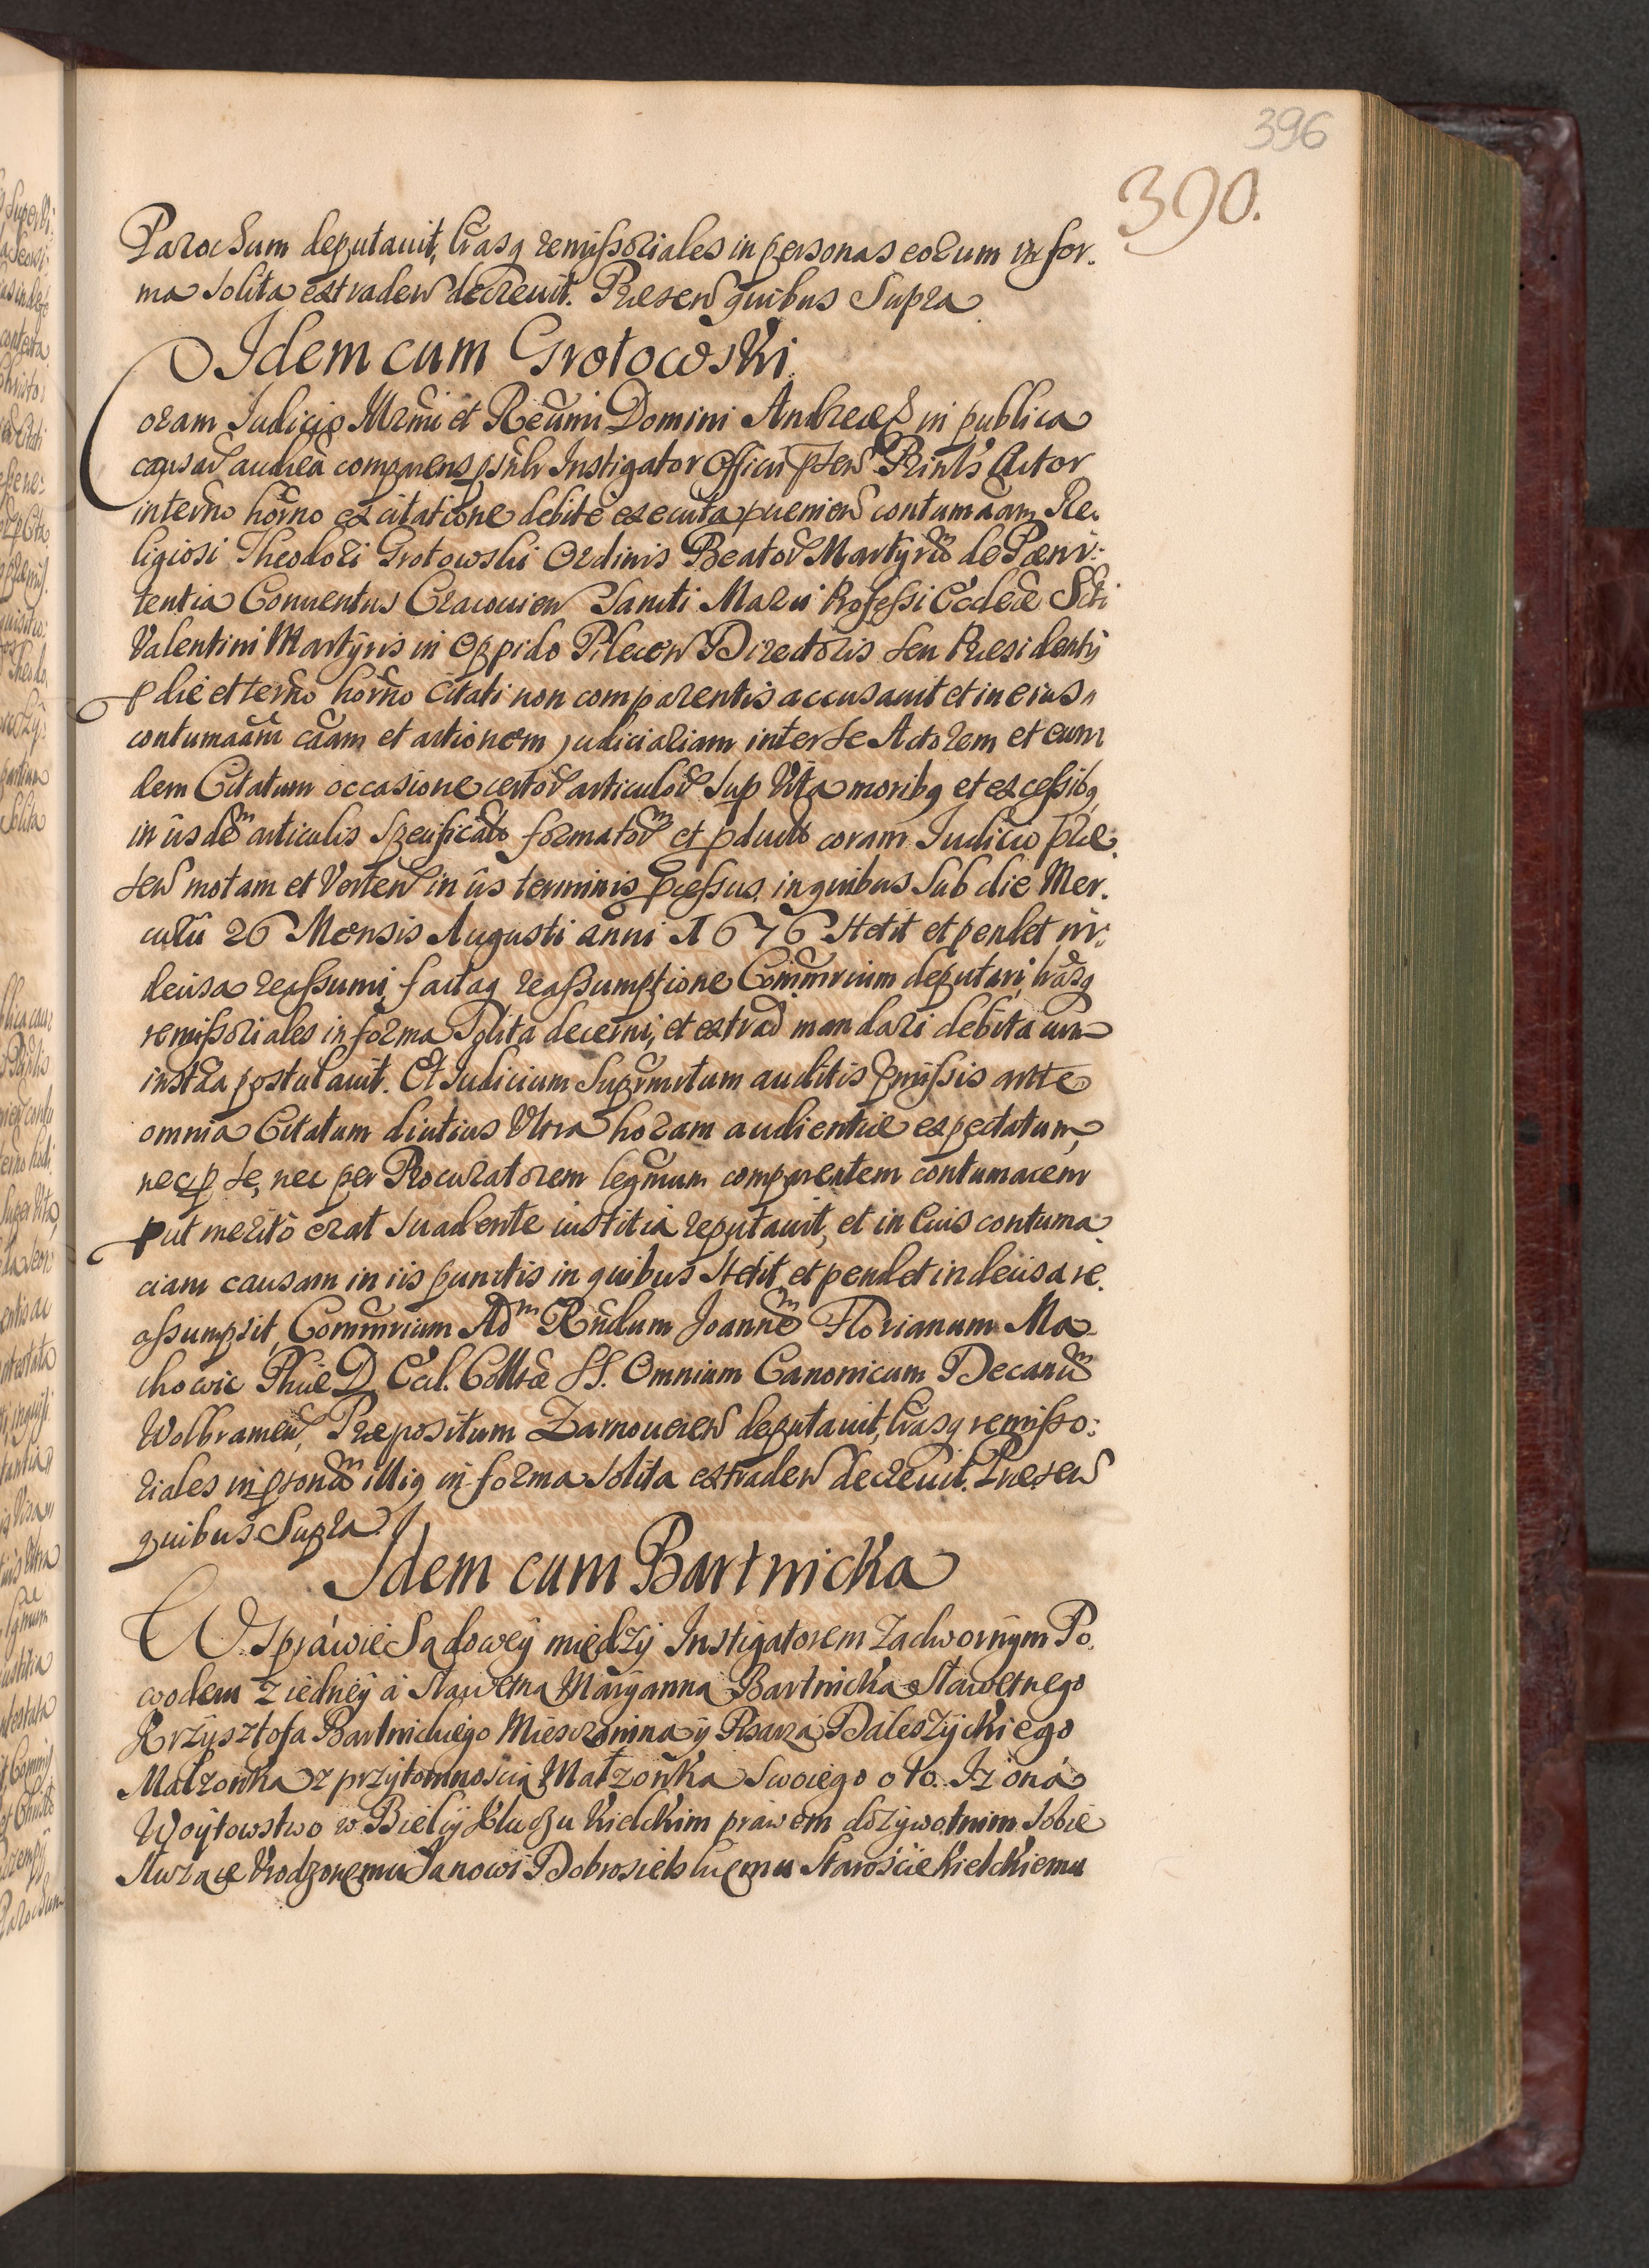 396
390.
Parochum deputauit, lr̃asq remissoriales in personas eorum in for.
ma solita extraden decreuit. Præsen quibus Supra
Idem cum Grotowski.
Coram Iudicio Illr̃mi et Rẽumi Domini Andreæ in publica
causar audiẽa comparens pñlr Instigator Officij pñsen Prinls Actor
in terño horño ex citatione debite executa prouenien contumaciam Re.
ligiosi Theodori Grotowski Ordinis Beator Martyrũ de Pæni:
tentia Conuentus Cracouien Sancti Marci Professi Eccleæ Scti
Valentini Martyris in Oppido Pilecen Directoris seu Præsidentis
p die et terño horño citati non comparentis accusauit et in eius
contumaciam cãam et actionem judiciariam inter se Actorem et eum
dem Citatum occasione certor articulor sup Vita moribq et excessibq
in ijsdẽ articulis Specificator formator et pductor coram Iudicio præ.
sen motam et Verten in ijs terminis pcessus, in quibus Sub die Mer.
curij 26 Mensis Augusti anni 1676 stetit et pendet in:
decisa reassumi, factaq reassumptione Com̃mrium deputari, lr̃asq
remissoriales in forma Solita decerni, et extrad mandari debita cum
instãa postulauit. Et Iudicium Suprmtum auditis pmissis ante
omnia Citatum diutius Vltra horam audientiæ expectatum,
nec p se, nec per Procuratorem legmum comparentem contumacem
put merito erat suadente iustitia reputauit, et in Cuis contuma
ciam causam in iis punctis in quibus stetit et pendet indecisa re.
assumpsit, Com̃mrium Adm Rñdum Joannẽ Florianum Ma
chowic Phiæ D. Eccl. Collr̃æ SS. Omnium Canonicum Decanũ
Wolbramen, Præpositum Zarnouecen deputauit, lr̃asq remisso:
riales in psonã illiq in forma solita extraden decreuit. Præsen
quibus Supra.
Idem cum Bartnicka
W spráwie Sądowey między Instigatorem Zadwornym Po.
wodem z iedney á Sławetną Máryanną Bartnicką Sławetnego
Krzysztofa Bartnickiego Miesczanina y Pisarzá Dáleszyckiego
Małzonką z przytomnością Małzonka Swoiego o to. Iz oná
Woytowstwo w Bieley Kluczu Kielckim práwem dożywotnim sobie
Słuzące Vrodzonemu Janowi Dobrosielskiemu Stárościie Kielckiemu